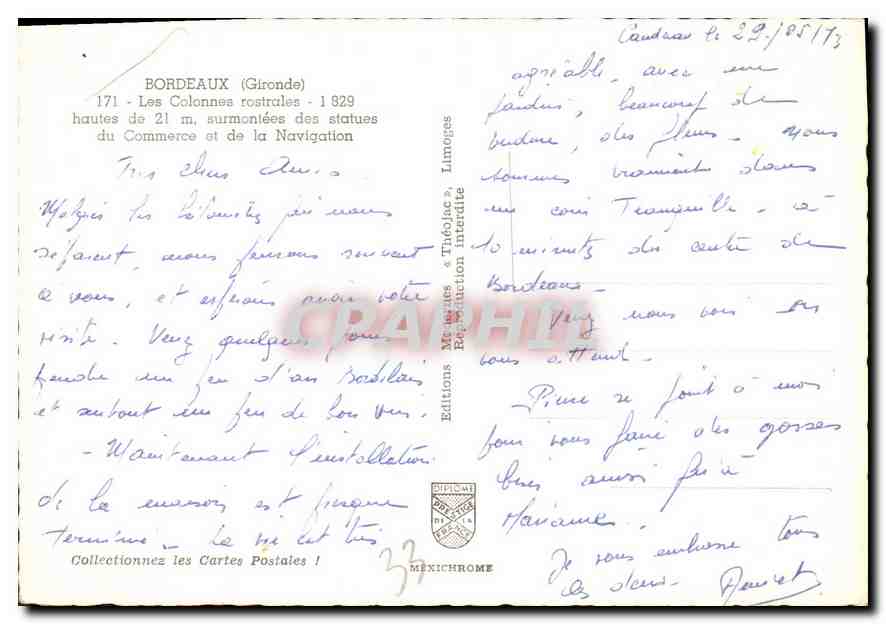 BORDEAUX (Gironde)
171 - Les Colonnes rostrales - 1829
hautes de 21 m, surmontées des statues
du Commerce et de la Navigation
Très chers Amis
Malgré les kilomètres qui nous
séparent, nous pensons souvent
à vous, et espérons avoir votre
visite. Venez quelques jours
prendre un peu d'air Bordelais
et surtout un peu de bon vin.
- Maintenant l'installation
de la maison est presque
terminée - La vie est très
Collectionnez les Cartes Postales !
Editions Modernes « Théojac », Limoges
Reproduction interdite
DIPLOME
PRESTIGE
DE LA
FRANCE
MEXICHROME
33
CPAPHIL
Caudéran le 29/05/73
agréable, avec un
jardin, beaucoup de
verdure, des fleurs - Nous
sommes vraiment dans
un coin Tranquille - à
10 minutes du centre de
Bordeaux -
Venez nous voir on
vous attend -
- Pierre se joint à moi
pour vous faire des grosses
bises ainsi qu'à
Je vous embrasse tous
les deux -